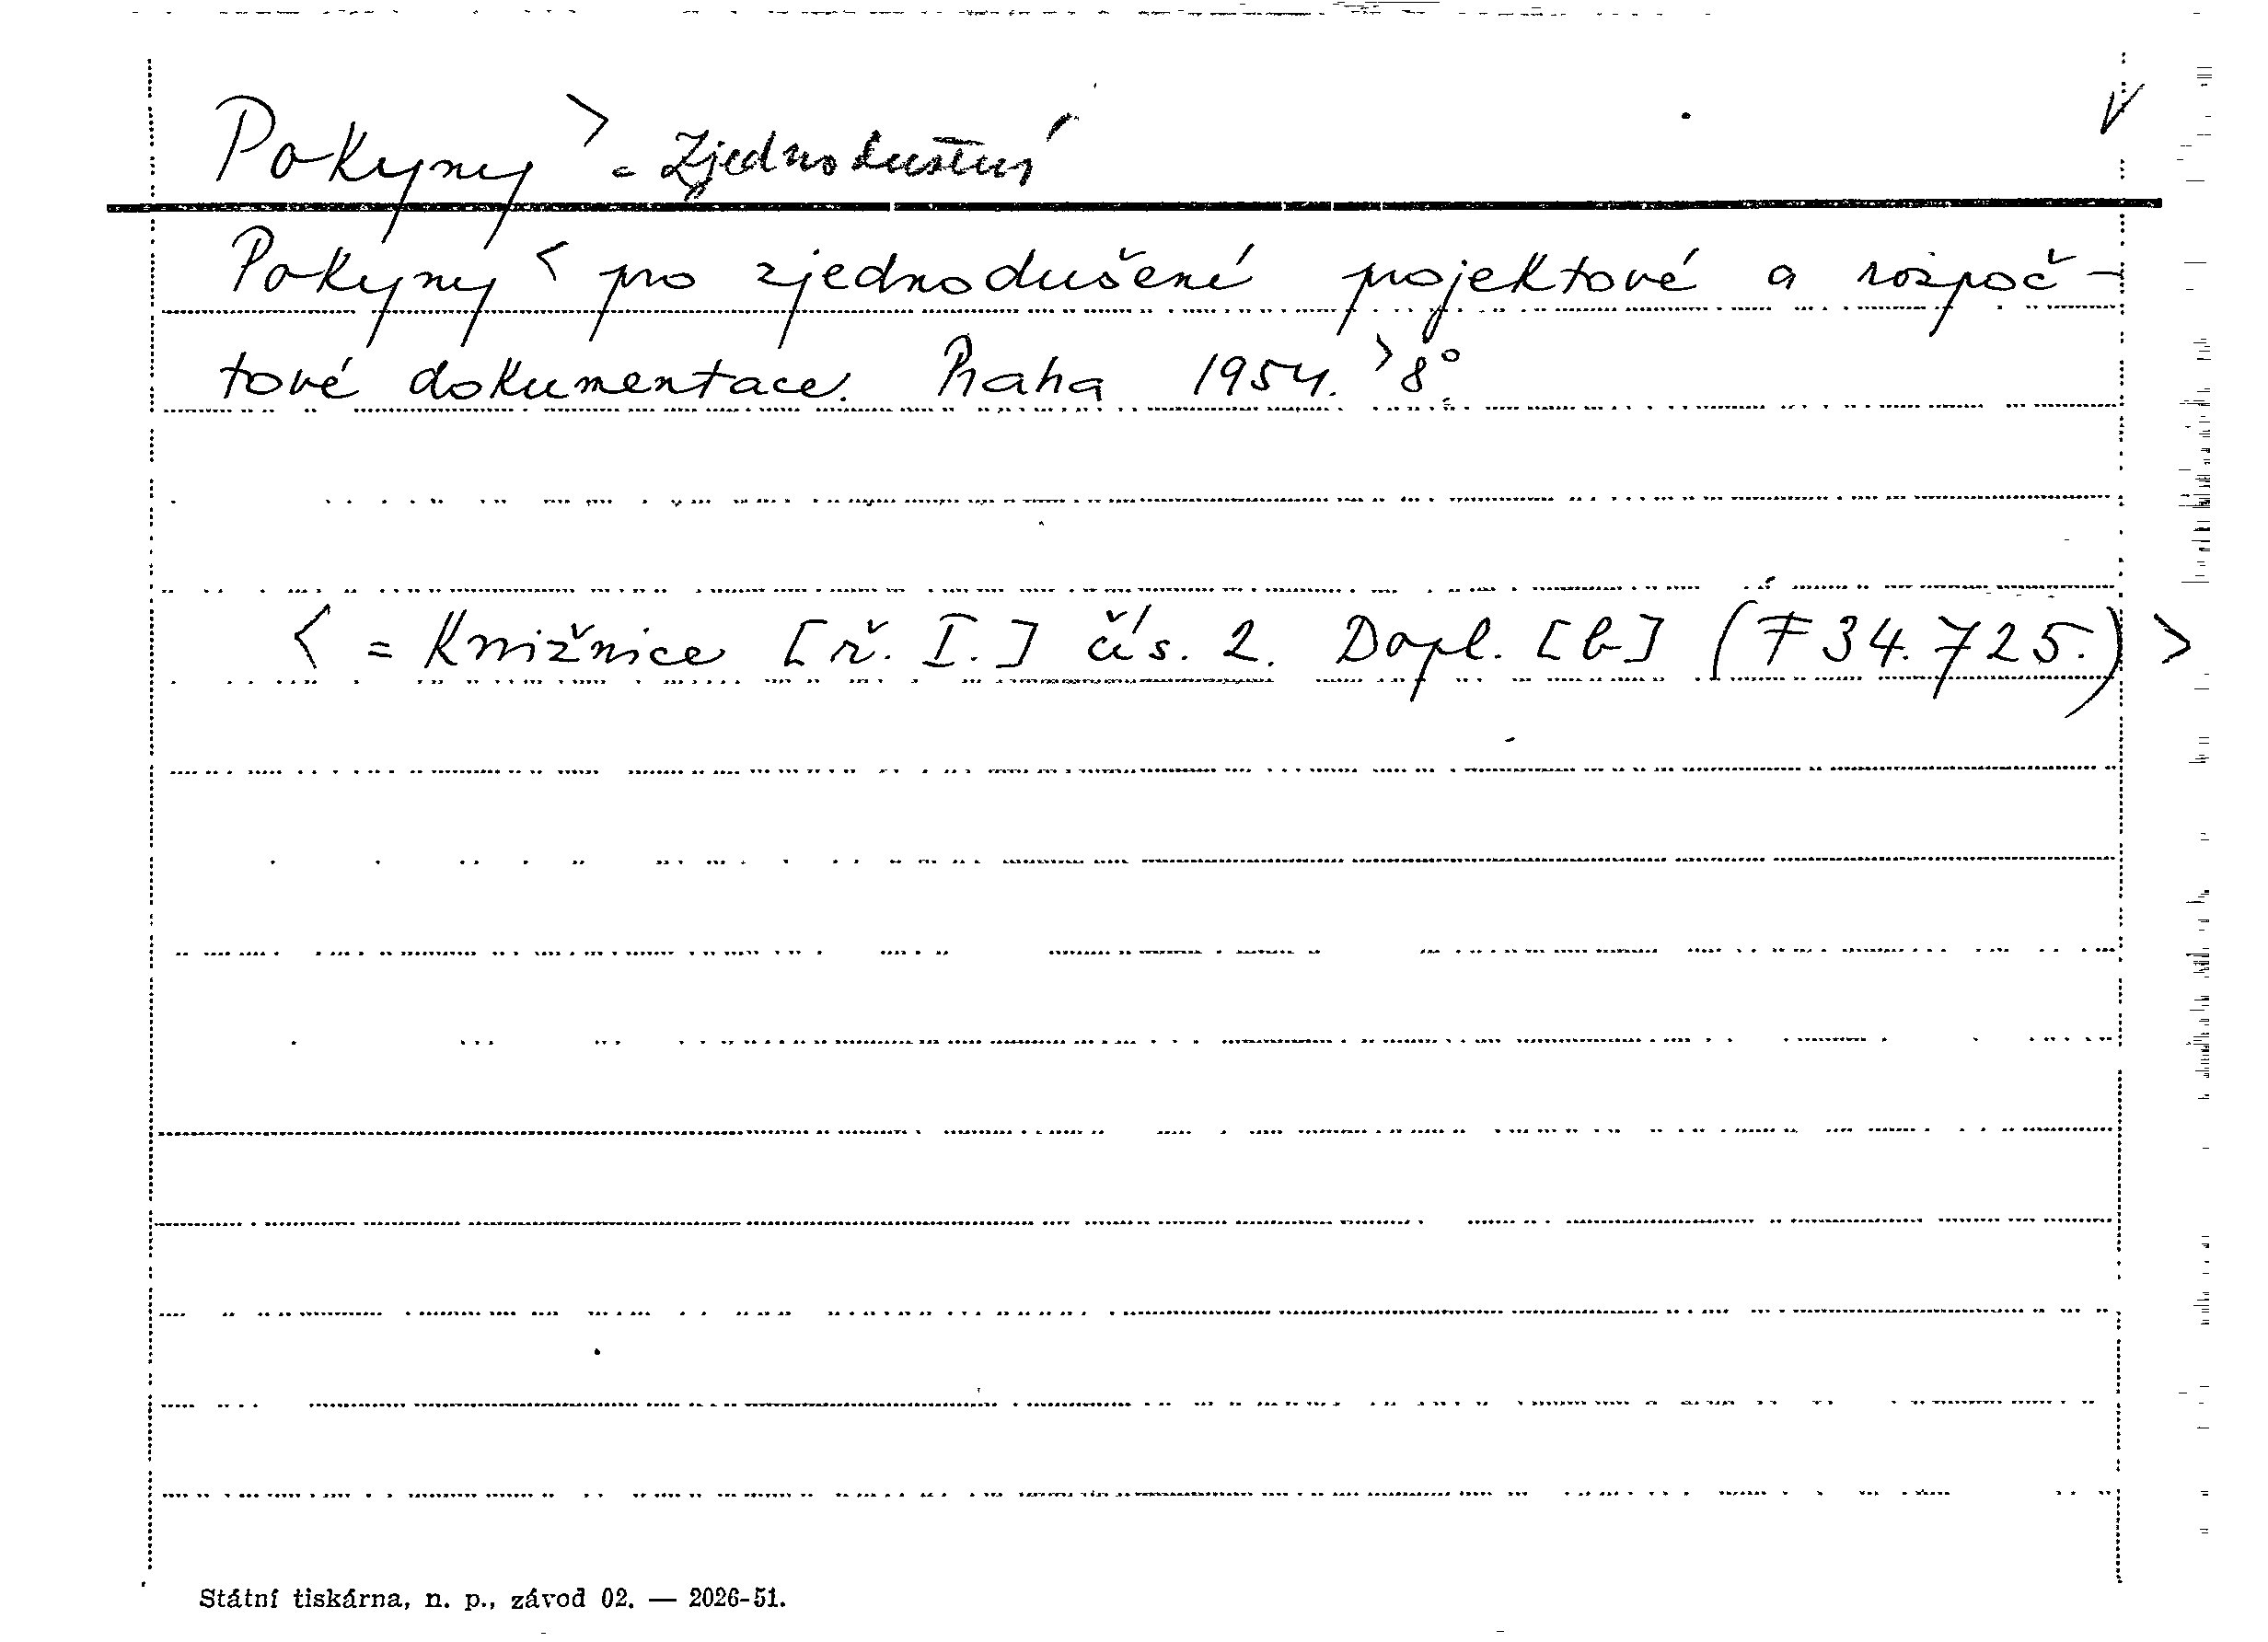 Pokyny > = Zjednodušení V
Pokyny < pro zjednodušené projektové a rozpoč-
tové dokumentace. Praha 1954. > 8°.
< = Knižnice [ř. I.] čís. 2. Dopl. [b] (F 34.725.) >
Státní tiskárna, n. p., závod 02. — 2026-51.